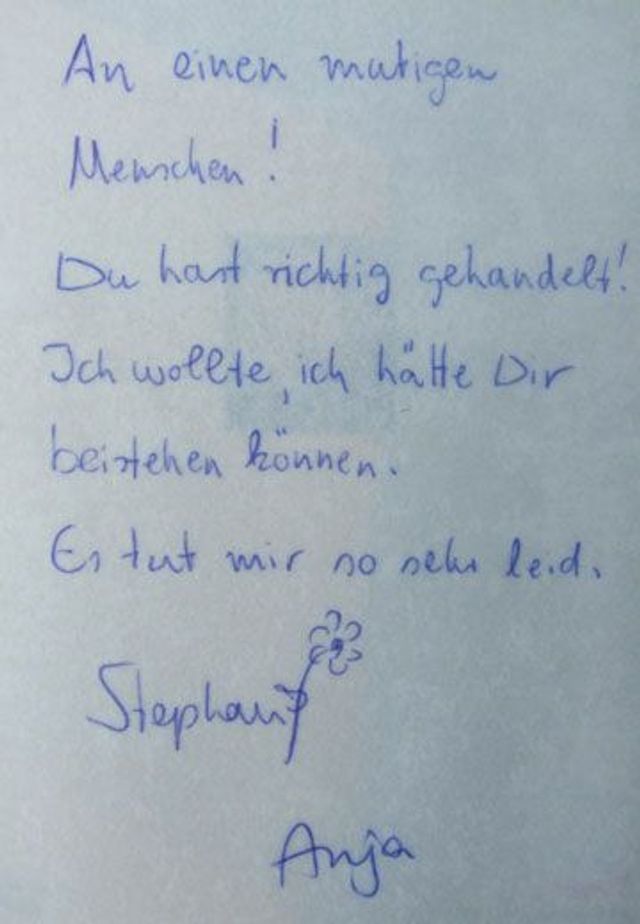 An einen mutigen
Menschen!
Du hast richtig gehandelt!
Ich wollte, ich hätte Dir
beistehen können.
Es tut mir so sehr leid.
Stephanie
Anja